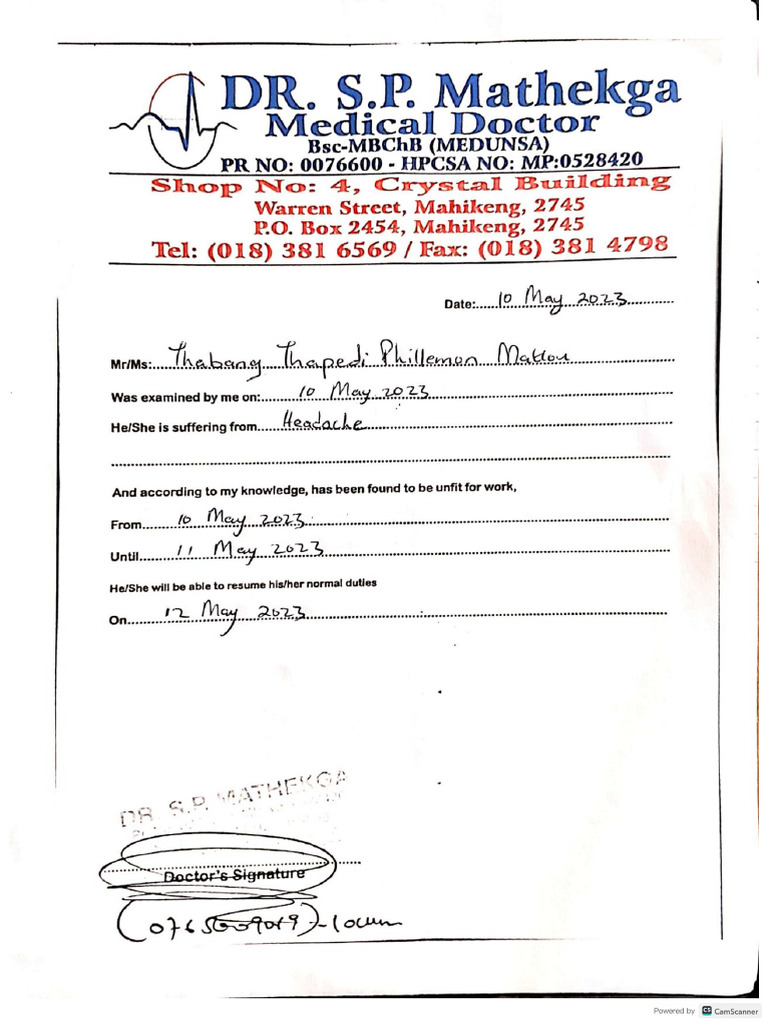 DR. S.P. Mathekga
Medical Doctor
Bsc-MBChB (MEDUNSA)
PR NO: 0076600 - HPCSA NO: MP:0528420
Shop No: 4, Crystal Building
Warren Street, Mahikeng, 2745
P.O. Box 2454, Mahikeng, 2745
Tel: (018) 381 6569 / Fax: (018) 381 4798
Date:.....10 May 2023............
Mr/Ms:.....Thabang Thapedi Phillemon
Was examined by me on:.........10 May 2023
He/She is suffering from.....Headache
And according to my knowledge, has been found to be unfit for work,
From.........10 May 2023
Until.........11 May 2023
He/She will be able to resume his/her normal duties
On.........12 May 2023
DR. S.P. MATHEKGA
Doctor's Signature
locum
Powered by CS CamScanner